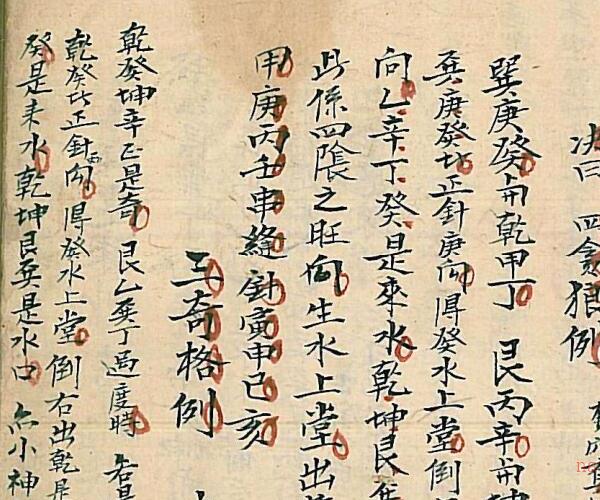 决曰 四貪狼例
巽庚癸兼乾甲丁 艮丙辛兼坤
巽庚癸坐正針庚向 得癸水上堂倒
向乙辛丁癸是來水乾坤艮巽
此係四陰之旺向生水上堂出
用庚丙壬串縫針寅申巳亥
三奇格例
乾癸坤辛正是奇 艮乙巽丁過度時 若是
乾癸坐正針西向 得癸水上堂倒右出乾是
癸是来水乾坤艮巽是水口 小神